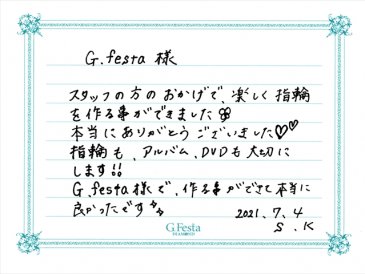 G.festa 様
スタッフの方のおかげで、楽しく指輪
を作る事ができました
本当にありがとうございました♡♡
指輪も、アルバム、DVDも大切に
します!!
G.festa様で、作る事ができて本当に
良かったです
2021.7.4
S.K
G.Festa